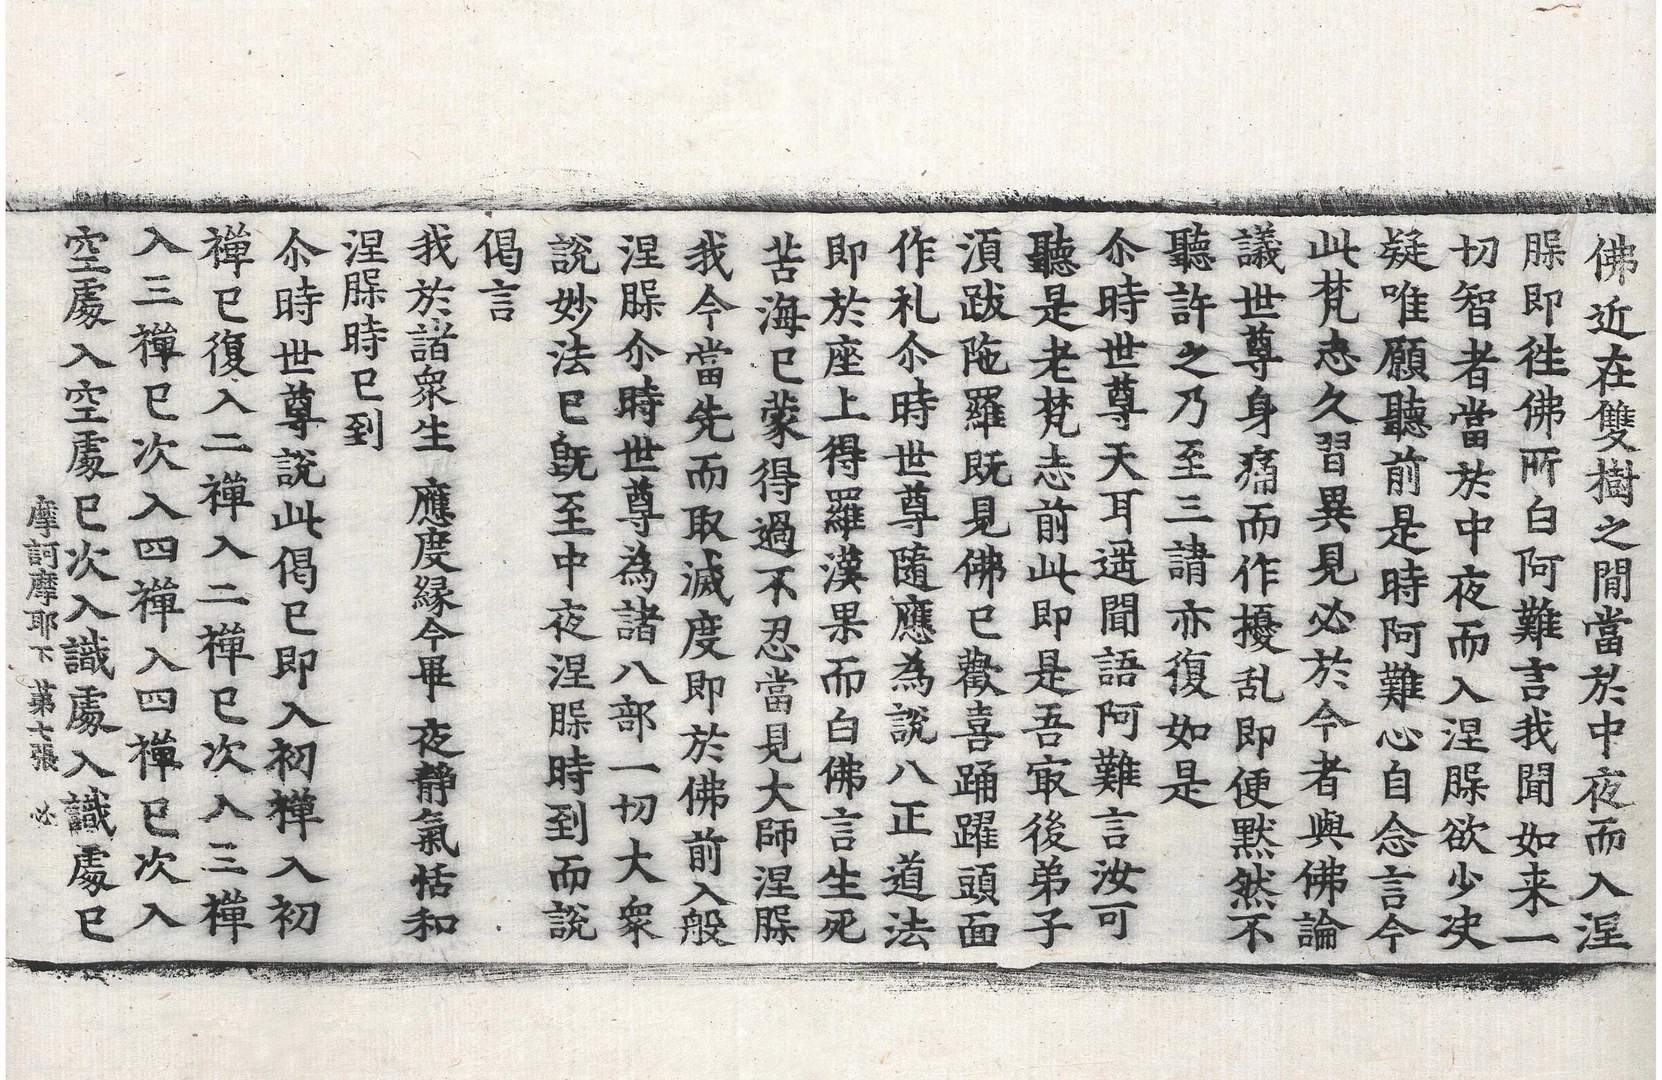 佛近在雙樹之間當於中夜而入涅
槃即往佛所白阿難言我聞如来一
切智者當於中夜而入涅槃欲少决
疑唯願聽前是時阿難心自念言今
此梵志久習異見必於今者與佛論
議世尊身痛而作擾乱即便默然不
聽許之乃至三請亦復如是
尒時世尊天耳遥聞語阿難言汝可
聽是老梵志前此即是吾㝡後弟子
湏跋陁羅既見佛已歡喜踊躍頭面
作礼尒時世尊隨應為說八正道法
即於座上得羅漢果而白佛言生死
苦海已蒙得過不忍當見大師涅槃
我今當先而取滅度即於佛前入般
涅槃尒時世尊為諸八部一切大衆
說妙法已既至中夜涅槃時到而說
偈言
我於諸衆生　應度緣今畢　夜靜氣恬和
涅槃時已到
尒時世尊說此偈已即入初禪入初
禪已復入二禪入二禪已次入三禪
入三禪已次入四禪入四禪已次入
空處入空處已次入識處入識處已
摩訶摩耶下　第七張　必